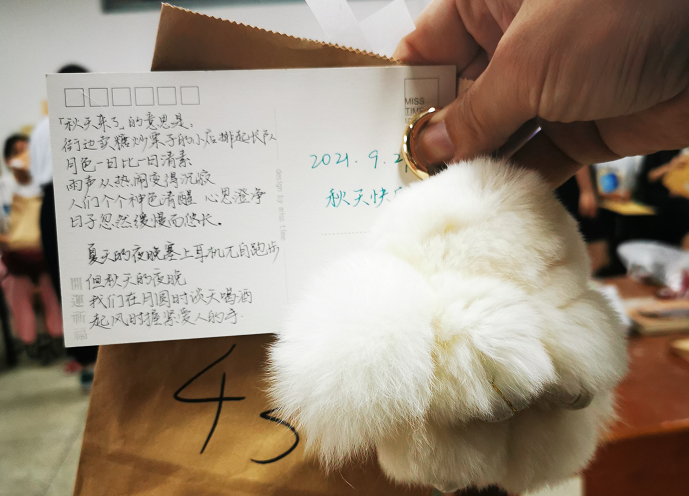 「秋天来了」的意思是,
街边卖糖炒栗子的小店排起长队
月色一日比一日清素
雨声从热闹变得沉寂
人们个个神色清醒 心思澄净
日子忽然缓慢而悠长.
夏天的夜晚塞上耳机兀自跑步
但秋天的夜晚
我们在月圆时谈天喝酒
起风时握紧爱人的手.
開運祈福
MISS
TIME
2021. 9. 2
秋天快
45